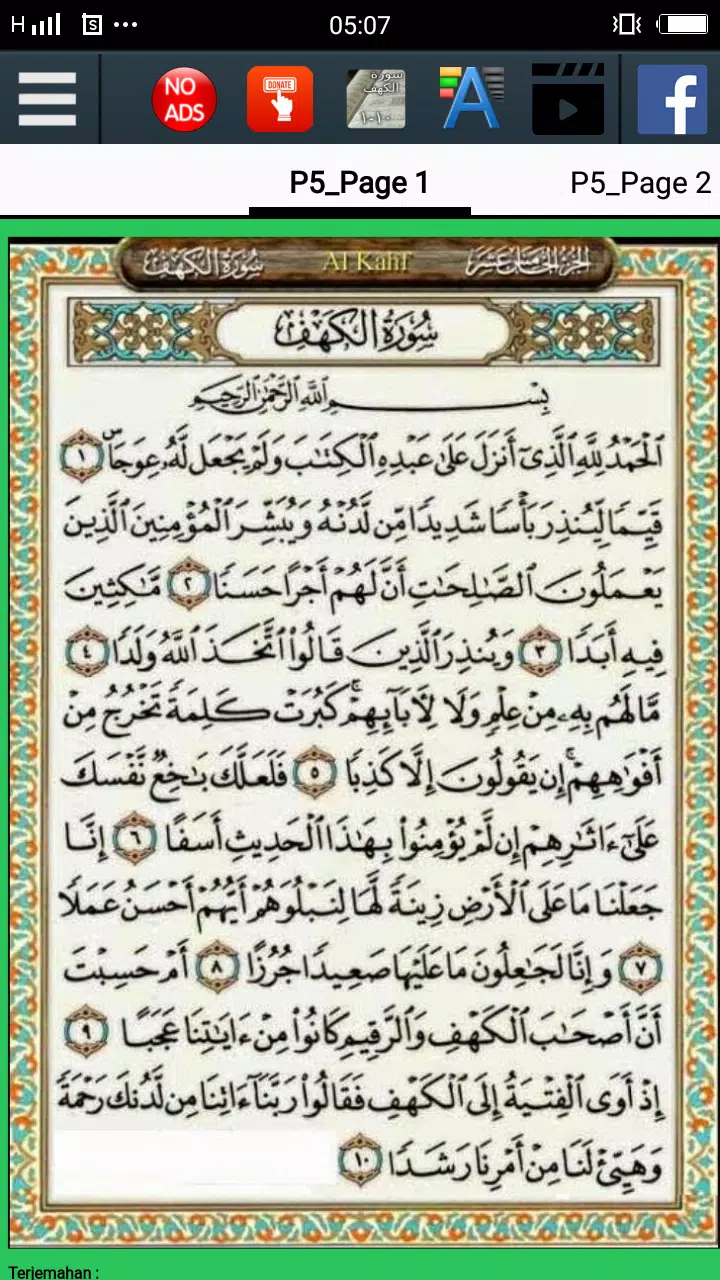 H 05:07
NO ADS
DONATE
سورة الكهف
١-١٠
A
f
P5_Page 1 P5_Page 2
سُورَةُ الكَهْفِ Al Kahf الجُزْءُ الخَامِسَ عَشَرَ
سُورَةُ الكَهْفِ
بِسْمِ اللَّهِ الرَّحْمَٰنِ الرَّحِيمِ
ٱلْحَمْدُ لِلَّهِ ٱلَّذِىٓ أَنزَلَ عَلَىٰ عَبْدِهِ ٱلْكِتَٰبَ وَلَمْ يَجْعَل لَّهُۥ عِوَجَاۜ ١
قَيِّمًا لِّيُنذِرَ بَأْسًا شَدِيدًا مِّن لَّدُنْهُ وَيُبَشِّرَ ٱلْمُؤْمِنِينَ ٱلَّذِينَ
يَعْمَلُونَ ٱلصَّٰلِحَٰتِ أَنَّ لَهُمْ أَجْرًا حَسَنًا ٢ مَّٰكِثِينَ
فِيهِ أَبَدًا ٣ وَيُنذِرَ ٱلَّذِينَ قَالُوا۟ ٱتَّخَذَ ٱللَّهُ وَلَدًا ٤
مَّا لَهُم بِهِۦ مِنْ عِلْمٍ وَلَا لِءَابَآئِهِمْ ۚ كَبُرَتْ كَلِمَةً تَخْرُجُ مِنْ
أَفْوَٰهِهِمْ ۚ إِن يَقُولُونَ إِلَّا كَذِبًا ٥ فَلَعَلَّكَ بَٰخِعٌ نَّفْسَكَ
عَلَىٰٓ ءَاثَٰرِهِمْ إِن لَّمْ يُؤْمِنُوا۟ بِهَٰذَا ٱلْحَدِيثِ أَسَفًا ٦ إِنَّا
جَعَلْنَا مَا عَلَى ٱلْأَرْضِ زِينَةً لَّهَا لِنَبْلُوَهُمْ أَيُّهُمْ أَحْسَنُ عَمَلًا
٧ وَإِنَّا لَجَٰعِلُونَ مَا عَلَيْهَا صَعِيدًا جُرُزًا ٨ أَمْ حَسِبْتَ
أَنَّ أَصْحَٰبَ ٱلْكَهْفِ وَٱلرَّقِيمِ كَانُوا۟ مِنْ ءَايَٰتِنَا عَجَبًا ٩
إِذْ أَوَى ٱلْفِتْيَةُ إِلَى ٱلْكَهْفِ فَقَالُوا۟ رَبَّنَآ ءَاتِنَا مِن لَّدُنكَ رَحْمَةً
وَهَيِّئْ لَنَا مِنْ أَمْرِنَا رَشَدًا ١٠
Terjemahan :